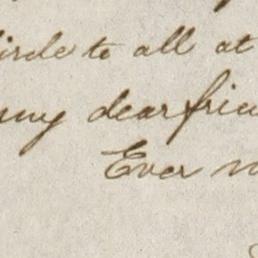 ircle to all at
my dear frie
Ever